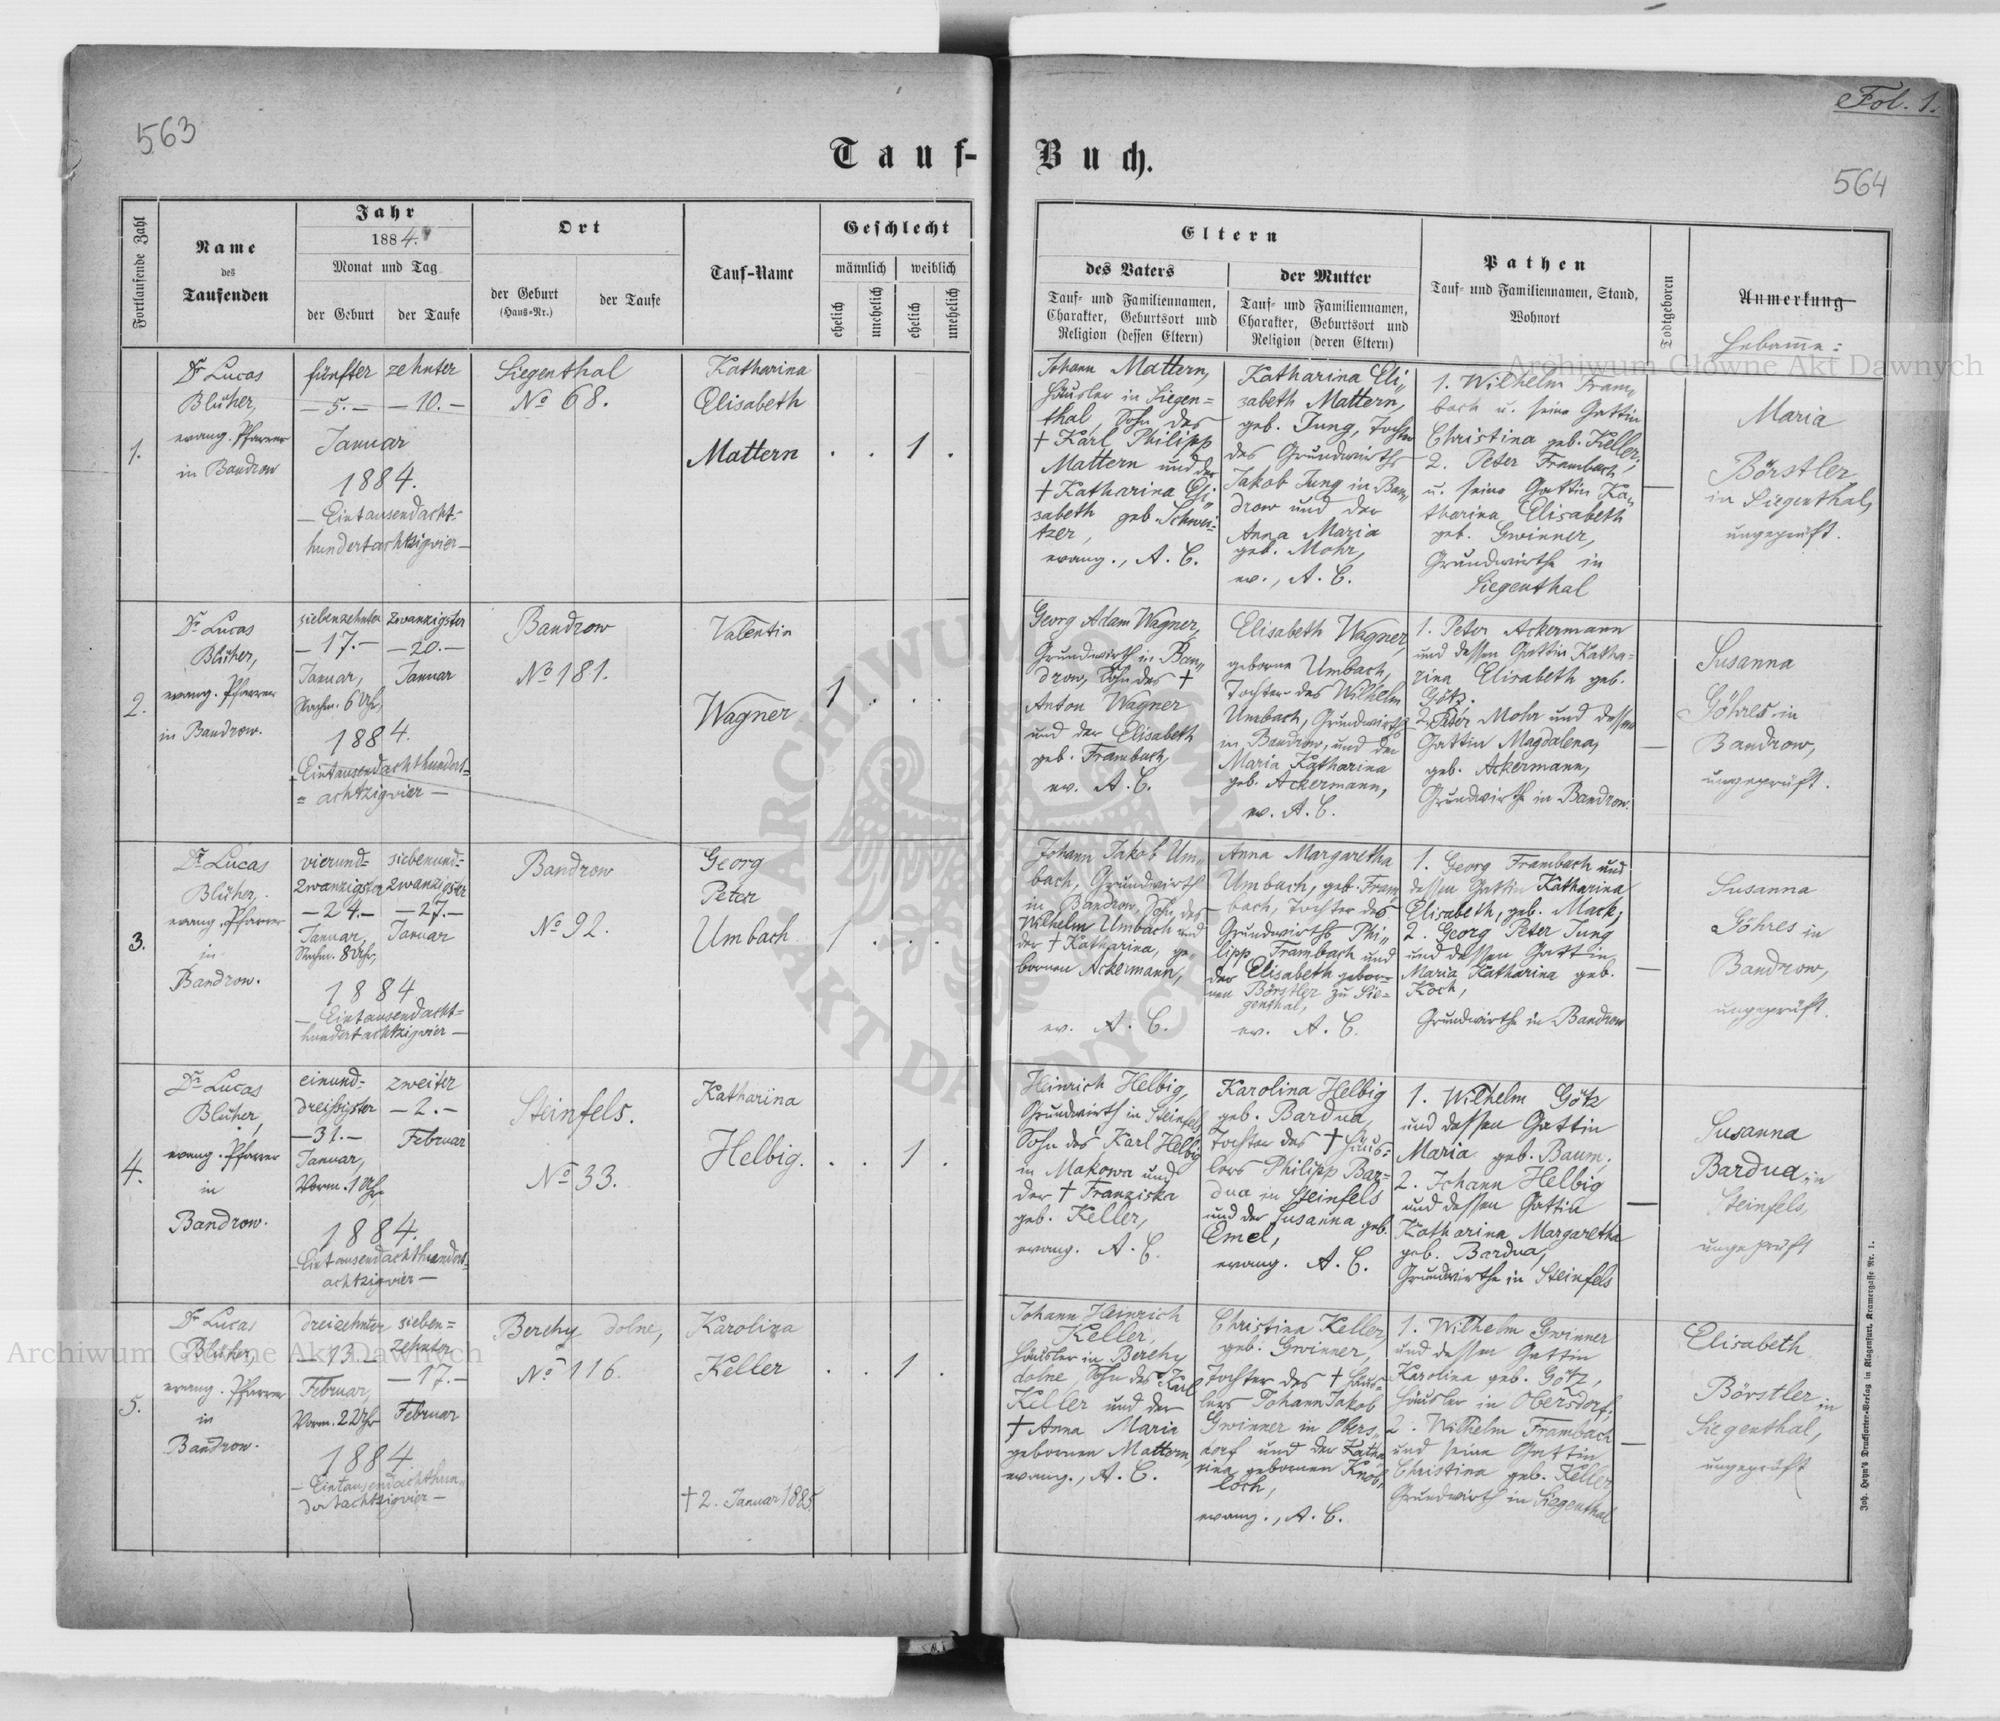 563
Fol. 1.
564
Tauf-Buch.
Fortlaufende Zahl
Name
des
Taufenden
Jahr
1884.
Monat und Tag
der Geburt
der Taufe
Ort
der Geburt
(Haus-Nr.)
der Taufe
Tauf-Name
Geschlecht
männlich
weiblich
ehelich
unehelich
ehelich
unehelich
Eltern
des Vaters
Tauf- und Familiennamen,
Charakter, Geburtsort und
Religion (dessen Eltern)
der Mutter
Tauf- und Familiennamen,
Charakter, Geburtsort und
Religion (deren Eltern)
Pathen
Tauf- und Familiennamen, Stand,
Wohnort
Todtgeboren
Anmerkung
Hebamme:
1.
Dr Lucas
Blüher,
evang. Pfarrer
in Bandrow
fünfter
— 5. —
zehnter
— 10. —
Januar
1884.
— Eintausendacht-
hundertachtzigvier —
Siegenthal
No 68.
Katharina
Elisabeth
Mattern
. . 1 .
Johann Mattern,
Häusler in Siegen=
thal, Sohn des
† Karl Philipp
Mattern und der
† Katharina Eli„
sabeth geb. Schwei-
tzer,
evang., A. C.
Katharina Eli„
sabeth Mattern,
geb. Jung, Tochter
des Grundwirths
Jakob Jung in Ban„
drow und der
Anna Maria
geb. Mohr,
ev., A. C.
1. Wilhelm Fram„
bach u. seine Gattin
Christina geb. Keller;
2. Peter Frambach
u. seine Gattin Ka„
tharina Elisabeth
geb. Gwinner,
Grundwirthe in
Siegenthal
—
Maria
Börstler,
in Siegenthal,
ungeprüft.
2.
Dr Lucas
Blüher,
evang. Pfarrer
in Bandrow.
siebenzehnter
— 17. —
Januar,
Nachm. 6 Uhr,
zwanzigster
— 20. —
Januar
1884.
Eintausendachthundert=
= achtzigvier —
Bandrow
No 181.
Valentin
Wagner
1 . . .
Georg Adam Wagner,
Grundwirth in Ban„
drow, Sohn des †
Anton Wagner
und der Elisabeth
geb. Frambach,
ev. A. C.
Elisabeth Wagner,
geborne Umbach,
Tochter des Wilhelm
Umbach, Grundwirths
in Bandrow, und der
Maria Katharina
geb. Ackermann,
ev. A. C.
1. Peter Ackermann
und dessen Gattin Katha=
rina Elisabeth geb.
Götz.
2. Peter Mohr und dessen
Gattin Magdalena,
geb. Ackermann,
Grundwirthe in Bandrow.
—
Susanna
Göhres in
Bandrow,
ungeprüft.
3.
Dr Lucas
Blüher,
evang. Pfarrer
in
Bandrow.
vierund=
zwanzigster
— 24. —
Januar,
Nachm. 8 Uhr,
siebenund=
zwanzigster
— 27. —
Januar
1884
— Eintausendacht=
hundertachtzigvier —
Bandrow
No 92.
Georg
Peter
Umbach.
1 . . .
Johann Jakob Um=
bach, Grundwirth
in Bandrow, Sohn des
Wilhelm Umbach und
der † Katharina, ge„
bornen Ackermann,
ev. A. C.
Anna Margaretha
Umbach, geb. Fram„
bach, Tochter des
Grundwirths Phi„
lipp Frambach und
der Elisabeth gebor=
nen Börstler zu Sie=
genthal,
ev. A. C.
1. Georg Frambach und
dessen Gattin Katharina
Elisabeth, geb. Mack;
2. Georg Peter Jung
und dessen Gattin
Maria Katharina geb.
Koch,
Grundwirthe in Bandrow
—
Susanna
Göhres in
Bandrow,
ungeprüft.
4.
Dr Lucas
Blüher,
evang. Pfarrer
in
Bandrow.
einund=
dreißigster
— 31. —
Januar,
Vorm. 1 Uhr,
zweiter
— 2. —
Februar
1884.
— Eintausendachthundert-
achtzigvier —
Steinfels.
No 33.
Katharina
Helbig.
. . 1 .
Heinrich Helbig,
Grundwirth in Steinfels,
Sohn des Karl Helbig
in Makowa und
der † Franziska
geb. Keller,
evang. A. C.
Karolina Helbig
geb. Bardua,
Tochter des † Häus=
lers Philipp Bar=
dua in Steinfels
und der Susanna geb.
Emel,
evang. A. C.
1. Wilhelm Götz
und dessen Gattin
Maria geb. Baum;
2. Johann Helbig
und dessen Gattin
Katharina Margaretha
geb. Bardua,
Grundwirthe in Steinfels
—
Susanna
Bardua, in
Steinfels,
ungeprüft
5.
Dr Lucas
Blüher,
evang. Pfarrer
in
Bandrow.
dreizehnter
— 13 —
Februar,
Vorm. 2 Uhr
sieben=
zehnter
— 17. —
Februar
1884
— Eintausendachthun„
dertachtzigvier —
Berehy dolne,
No 116.
Karolina
Keller
† 2. Januar 1885.
. . 1 .
Johann Heinrich
Keller,
Häusler in Berehy
dolne, Sohn des Karl
Keller und der
† Anna Maria
gebornen Mattern,
evang., A. C.
Christina Keller,
geb. Gwinner,
Tochter des † Häus-
lers Johann Jakob
Gwinner in Obers„
dorf und der Katha„
rina gebornen Knob„
loch,
evang., A. C.
1. Wilhelm Gwinner
und dessen Gattin
Karolina geb. Götz,
Häusler in Obersdorf;
2. Wilhelm Frambach
und seine Gattin
Christina geb. Keller,
Grundwirth in Siegenthal
—
Elisabeth
Börstler in
Siegenthal,
ungeprüft
Joh. Heyn's Drucksorten-Verlag in Klagenfurt, Kramergasse Nr. 1.
Archiwum Główne Akt Dawnych
Archiwum Główne Akt Dawnych
ARCHIWUM GŁÓWNE AKT DAWNYCH